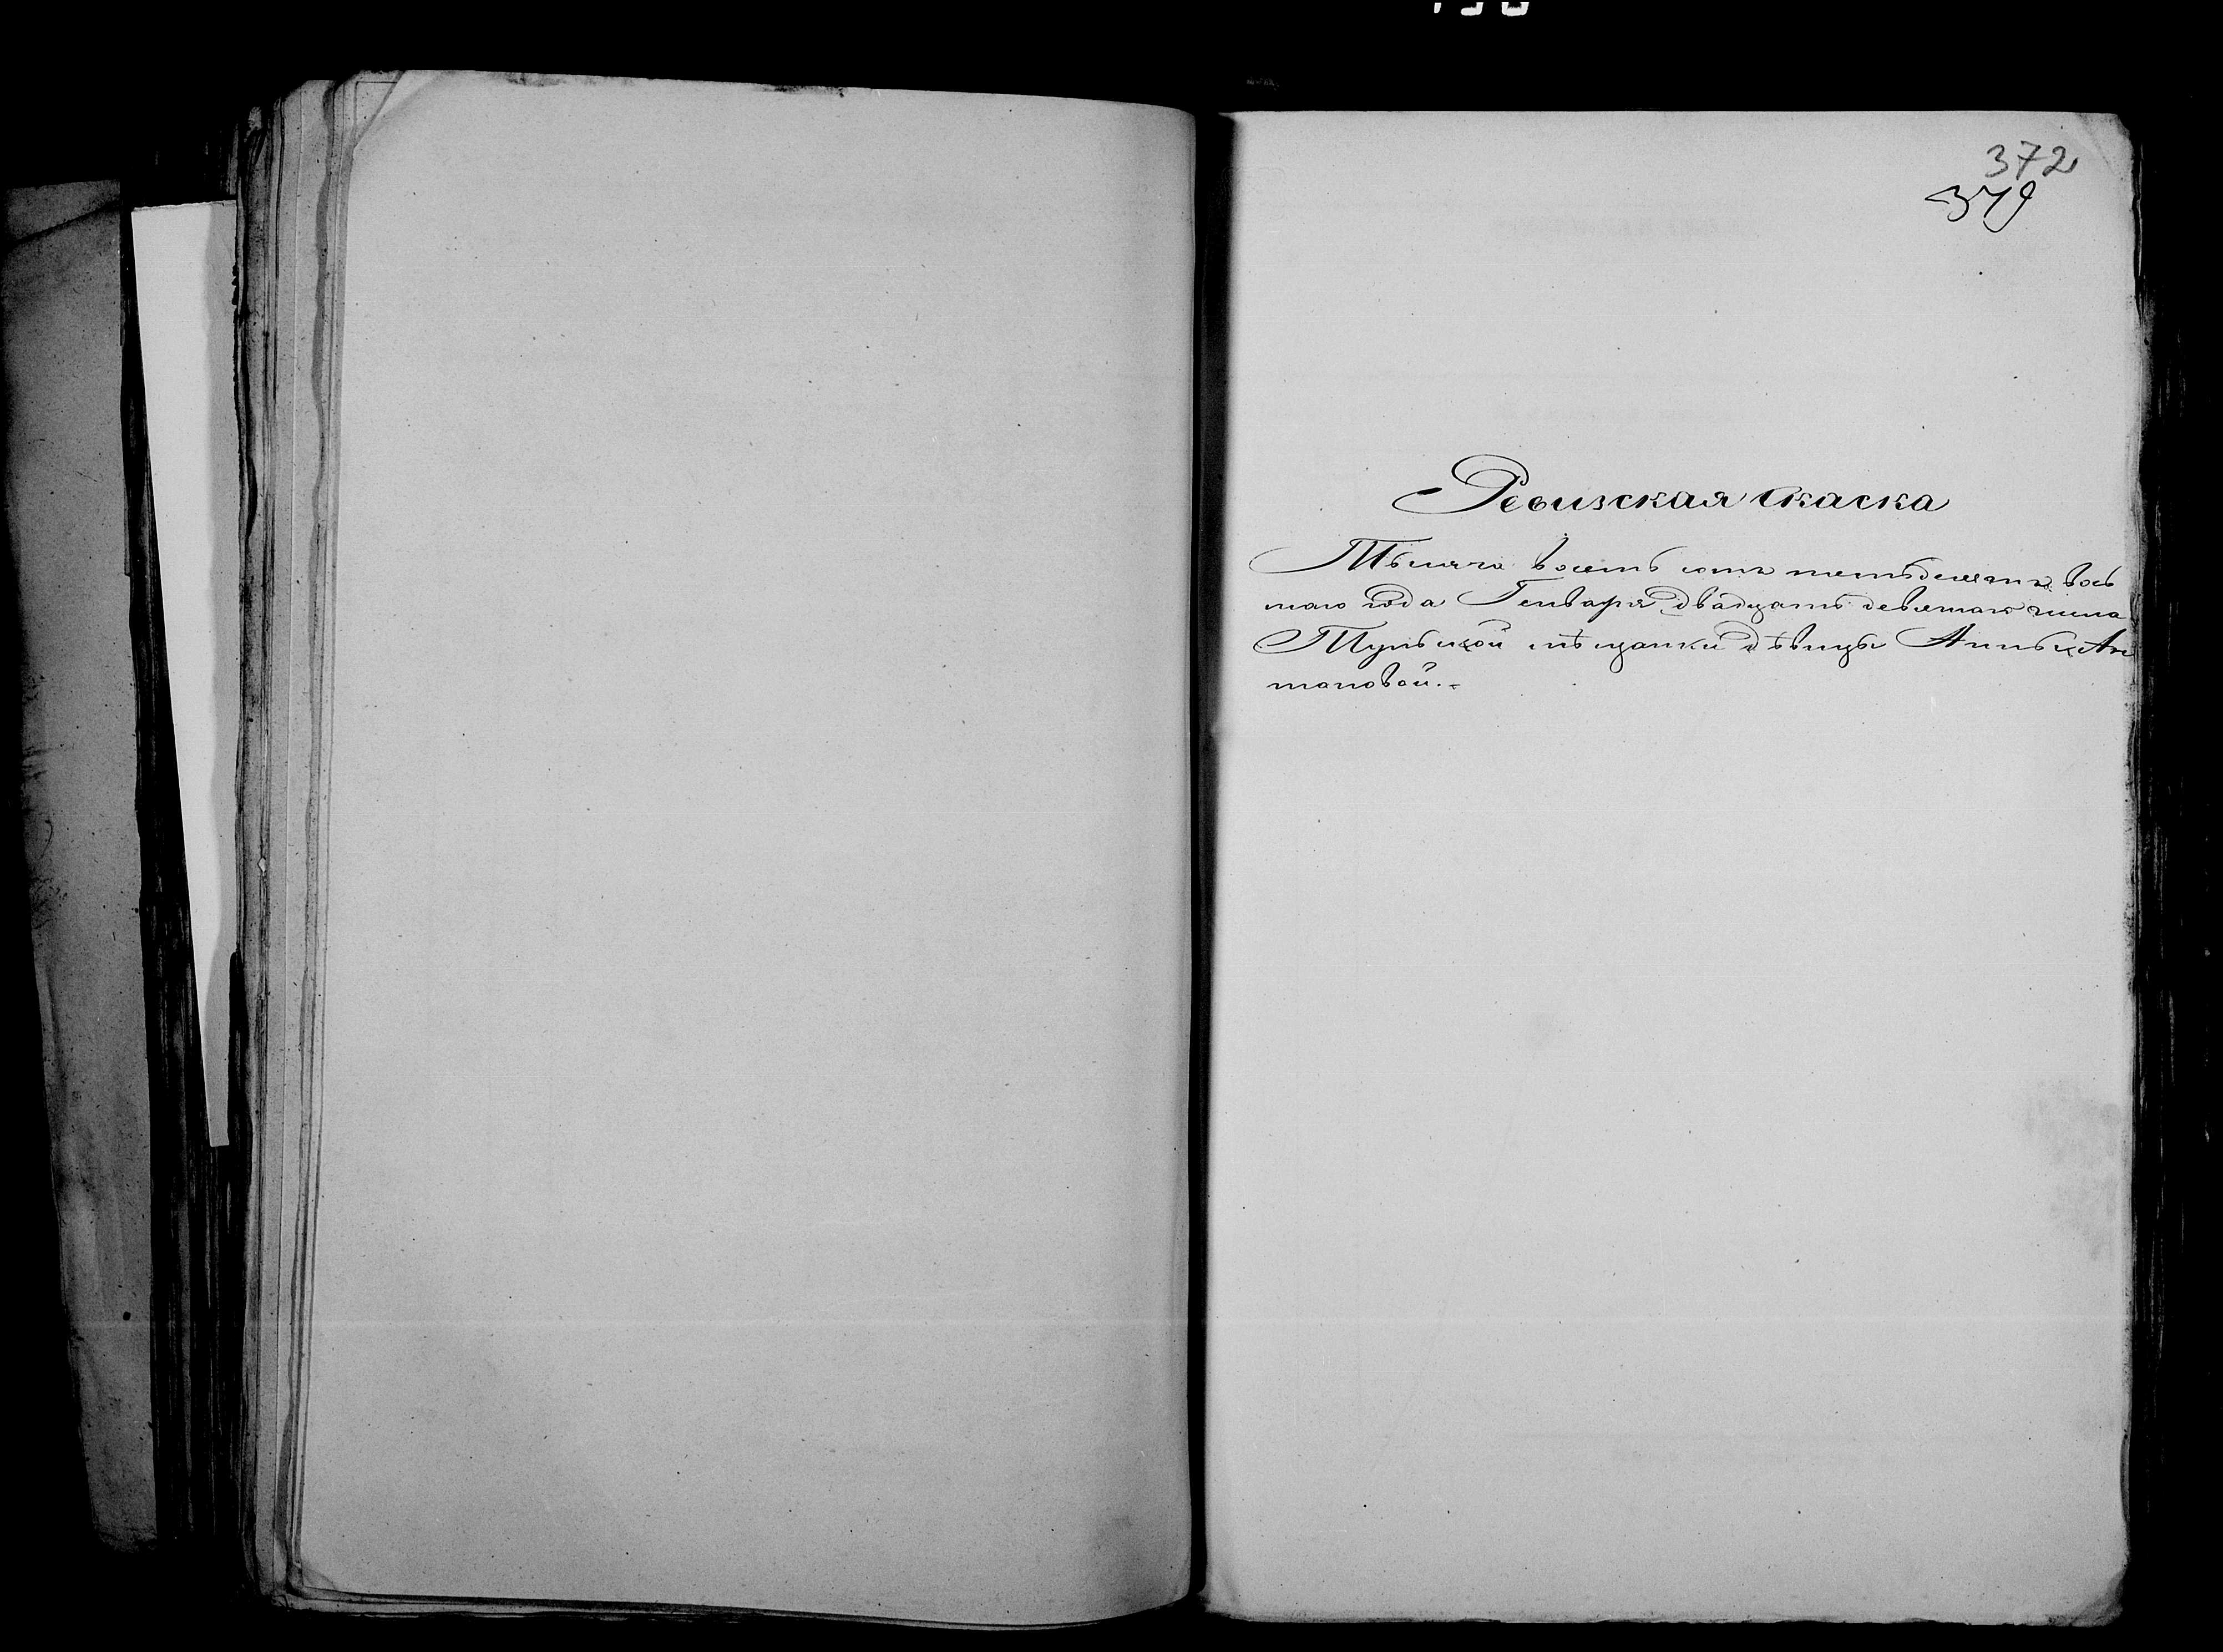 372
379
Ревизская скаска
Тысяча восемь сотъ пятьдесятъ вось
маго года Генваря двадцать девятаго числа
Тульской мѣщанки дѣвицы Анны Ан
тоновой.